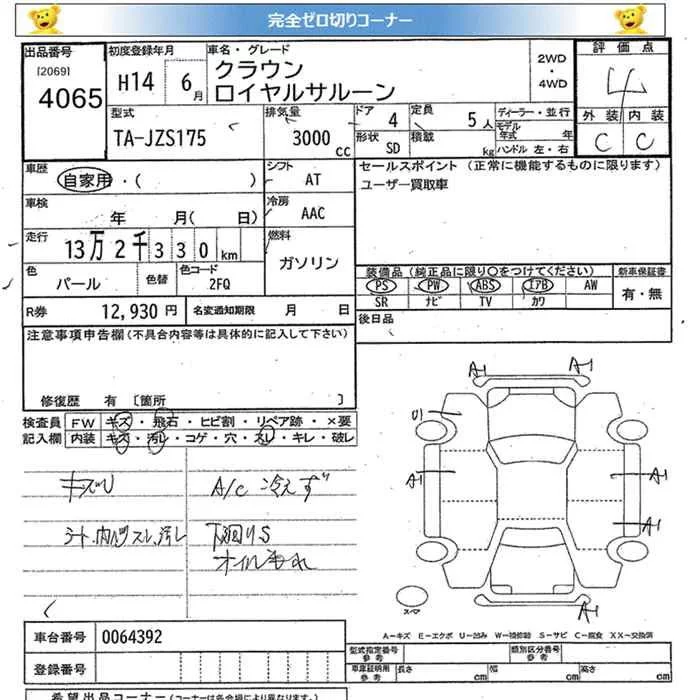 完全ゼロ切りコーナー
出品番号 初度登録年月 車名・グレード 2WD・4WD 評価点
[2069] 4065 H14 6月 クラウン ロイヤルサルーン 4
型式 排気量 ドア 定員 ディーラー・並行 外装 内装
TA-JZS175 3000cc 4 5人 モデル年式 年 C C
形状 SD 積載 kg ハンドル 左・右
車歴 自家用・( ) シフト AT セールスポイント (正常に機能するものに限ります)
ユーザー買取車
車検 年 月( 日) 冷房 AAC
走行 13万2千330km 燃料 ガソリン
色 パール 色替 色コード 2FQ
装備品(純正品に限り○をつけてください) 新車保証書
PS PW ABS エアB AW 有・無
SR ナビ TV カワ
R券 12,930円 名変通知期限 月 日
後日品
注意事項申告欄(不具合内容等は具体的に記入して下さい)
修復歴 有 [箇所 ]
検査員 FW キズ・飛石・ヒビ割・リペア跡・×要
記入欄 内装 キズ・汚レ・コゲ・穴・スレ・キレ・破レ
キズU A/C 冷えず
シート、内ハリスレ、汚レ 下廻りS
オイルもれ
A1 A1
U1
A1 A1
A1
A1
スペア
A-キズ E-エクボ U-凹み W-補修跡 S-サビ C-腐食 XX-交換済
車台番号 0064392
型式指定番号 参考 類別区分番号 参考
登録番号 車庫証明用 参考 長さ cm 幅 cm 高さ cm
希望出品コーナー